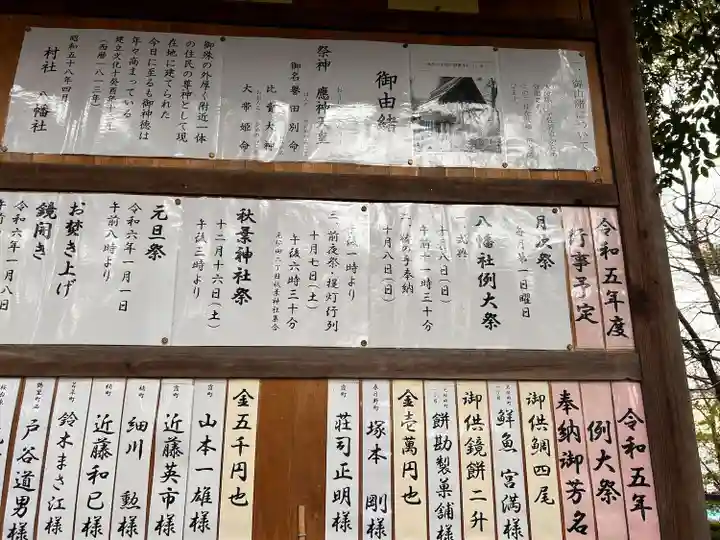 御由緒
祭神 應神天皇
御名 譽田別命
比賣大神
大帯姫命
御殊の外厚く附近一体
の住民の尊神として現
在地に建てられた
今日に至るも御神徳は
年々高まっている
建立文化十癸酉年
(西暦一八一三年)
昭和五十八年四月
村社 八幡社
令和五年度
行事予定
月次祭
毎月第一日曜日
八幡社例大祭
一、式典
十月八日(日)
午前十一時三十分
十月八日(日)
午後一時より
三、前夜祭・提灯行列
十月七日(土)
午後六時三十分
秋葉神社祭
十二月十六日(土)
午後三時より
元旦祭
令和六年一月一日
午前八時より
お焚き上げ
鏡開き
令和六年一月八日
令和五年
例大祭
奉納御芳名
御供鯛四尾
鮮魚 宮満様
御供鏡餅二升
餅勘製菓舗様
金壱萬円也
塚本 剛様
霞町
荘司正明様
金五千円也
霞町
山本一雄様
霞町
近藤英市様
細川 勲様
近藤和巳様
鈴木まさ江様
戸谷道男様